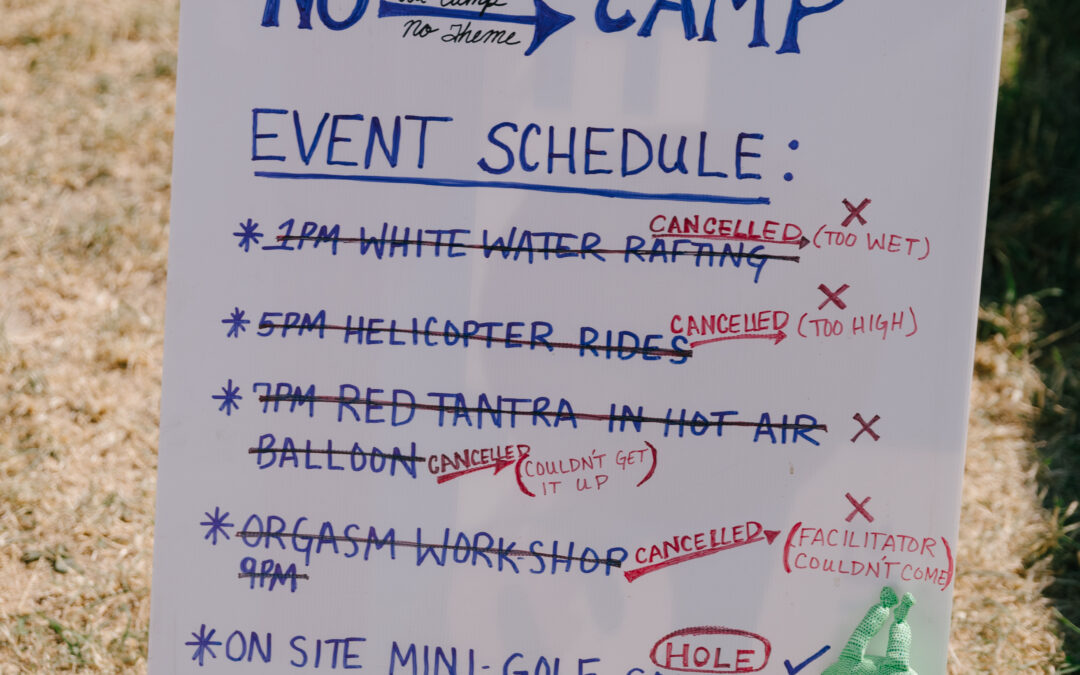 NO CAMP
No Theme
EVENT SCHEDULE:
* 1PM WHITE WATER RAFTING CANCELLED (TOO WET)
* 5PM HELICOPTER RIDES CANCELLED (TOO HIGH)
* 7PM RED TANTRA IN HOT AIR
BALLOON CANCELLED (COULDN'T GET
IT UP)
* ORGASM WORK-SHOP CANCELLED (FACILITATOR
COULDN'T COME)
9PM
* ON SITE MINI-GOLF HOLE